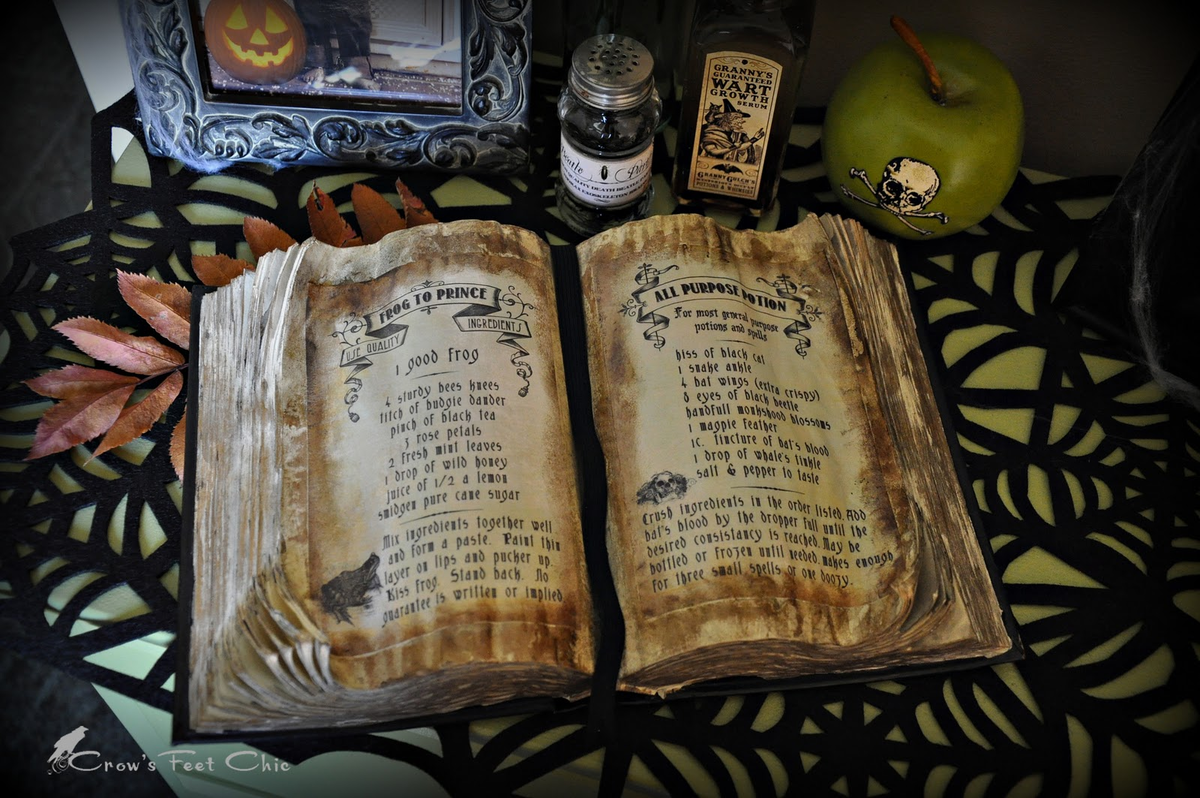 GRANNY'S
GUARANTEED
WART
GROWTH
SERUM
POTIONS &
FROG TO PRINCE
USE QUALITY
INGREDIENTS
1 good frog
4 sturdy bees knees
titch of budgie dander
pinch of black tea
3 rose petals
2 fresh mint leaves
1 drop of wild honey
juice of 1/2 a lemon
smidgen pure cane sugar
Mix ingredients together well
and form a paste. Paint thin
layer on lips and pucker up.
Kiss frog. Stand back. No
guarantee is written or implied
ALL PURPOSE POTION
For most general purpose
potions and spells
hiss of black cat
1 snake ankle
4 bat wings (extra crispy)
8 eyes of black beetle
handfull monkshood blossoms
1 magpie feather
1c. tincture of bat's blood
1 drop of whale's tinkle
salt & pepper to taste
Crush ingredients in the order listed. Add
bat's blood by the dropper full until the
desired consistancy is reached. May be
bottled or frozen until needed. makes enough
for three small spells or one doozy.
Crow's Feet Chic